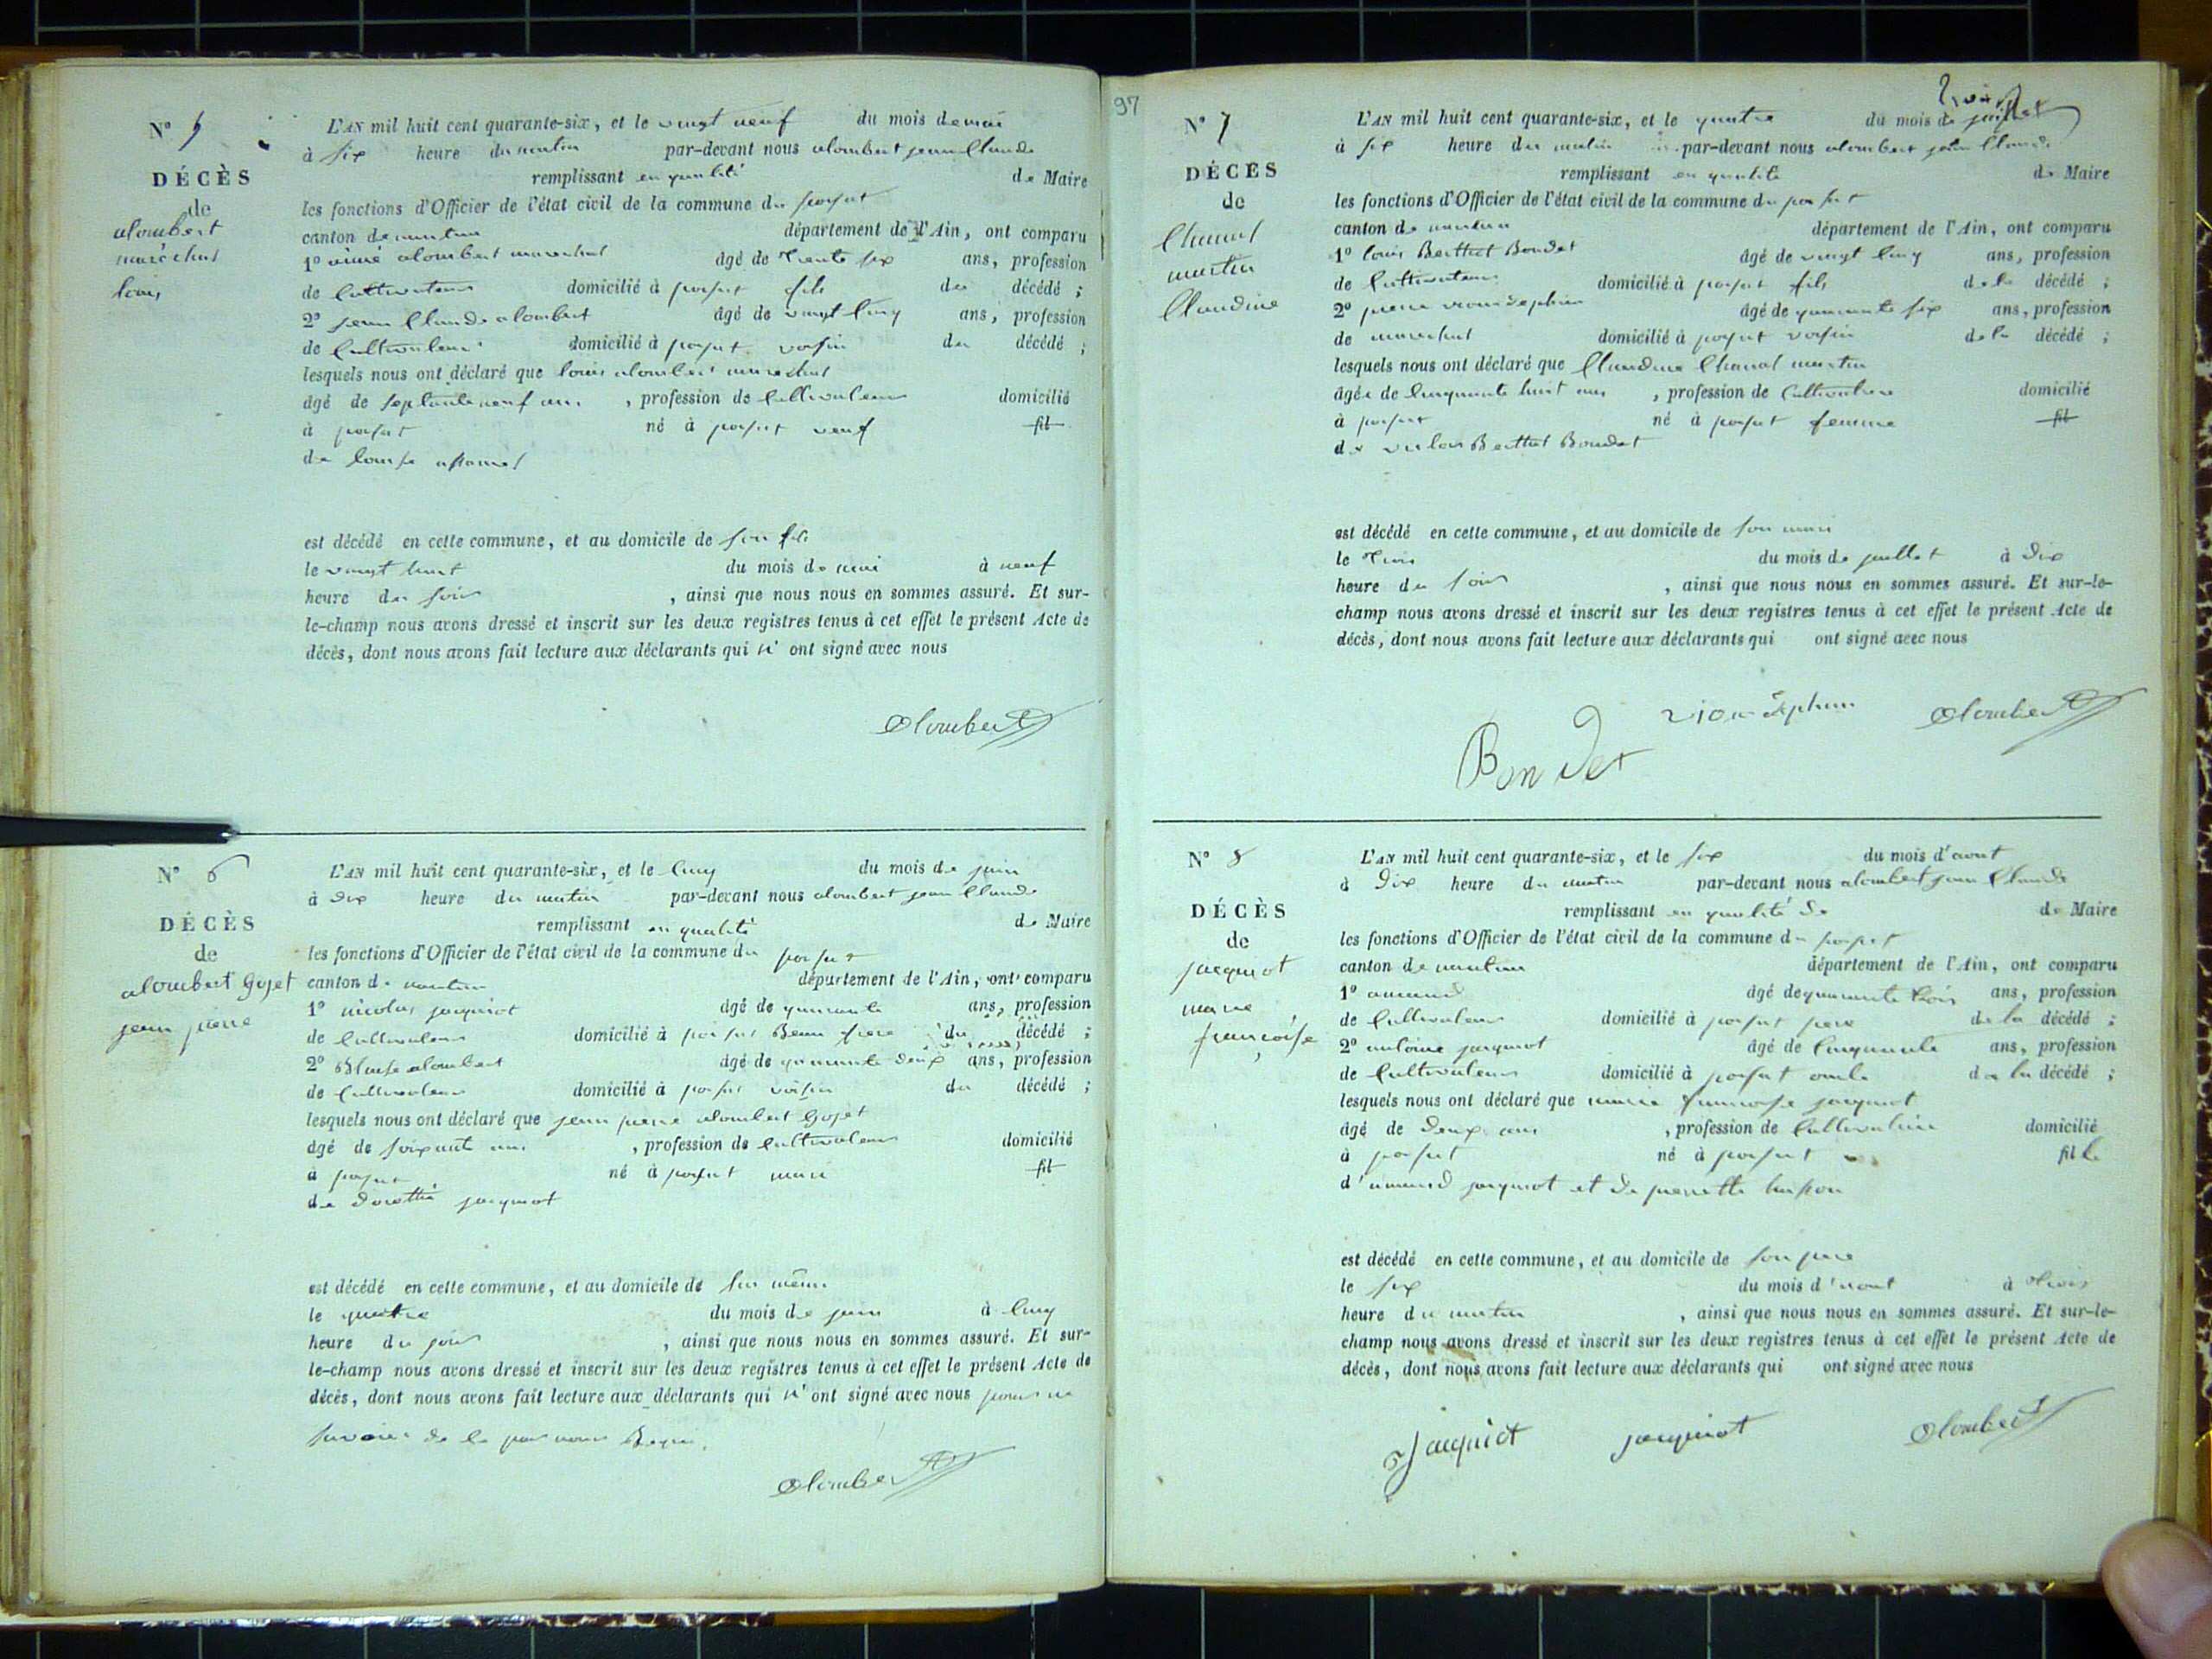 N° 5
DÉCÈS
de
alombert
maréchal
louis
L'AN mil huit cent quarante-six, et le vingt neuf du mois de mai
à six heure du matin par-devant nous alombert jean Claude
remplissant en qualité de Maire
les fonctions d'Officier de l'état civil de la commune du poisat
canton de nantua département de l'Ain, ont comparu
1° aimé alombert marechal âgé de trente six ans, profession
de Cultivateur domicilié à poisat fils du décédé ;
2° jean Claude alombert âgé de vingt Cinq ans, profession
de Cultivateur domicilié à poisat voisin du décédé ;
lesquels nous ont déclaré que louis alombert marechal
âgé de septante neuf ans , profession de Cultivateur domicilié
à poisat né à poisat veuf fil
de louise
est décédé en cette commune, et au domicile de son fils
le vingt huit du mois de mai à neuf
heure du soir , ainsi que nous nous en sommes assuré. Et sur-
le-champ nous avons dressé et inscrit sur les deux registres tenus à cet effet le présent Acte de
décès, dont nous avons fait lecture aux déclarants qui n' ont signé avec nous
Alombert
N° 6
DÉCÈS
de
alombert gojet
jean pierre
L'AN mil huit cent quarante-six, et le Cinq du mois de juin
à dix heure du matin par-devant nous alombert jean Claude
remplissant en qualité de Maire
les fonctions d'Officier de l'état civil de la commune du poisat
canton de nantua département de l'Ain, ont comparu
1° nicolas jacquiot âgé de quarante ans, profession
de Cultivateur domicilié à poisat Beau frere du décédé ;
2° Blaise alombert âgé de quarante deux ans, profession
de Cultivateur domicilié à poisat voisin du décédé ;
lesquels nous ont déclaré que jean pierre alombert Gojet
âgé de soixante ans , profession de Cultivateur domicilié
à poisat né à poisat mari fil
de dorothé jacquiot
est décédé en cette commune, et au domicile de lui même
le quatre du mois de juin à Cinq
heure du soir , ainsi que nous nous en sommes assuré. Et sur-
le-champ nous avons dressé et inscrit sur les deux registres tenus à cet effet le présent Acte de
décès, dont nous avons fait lecture aux déclarants qui n' ont signé avec nous pour ne
savoir de le par nous Requi.
Alombert
97
N° 7
DÉCÈS
de
Chanal
martin
Claudine
L'AN mil huit cent quarante-six, et le quatre du mois de juillet
à six heure du matin par-devant nous alombert jean Claude
remplissant en qualité de Maire
les fonctions d'Officier de l'état civil de la commune du poisat
canton de nantua département de l'Ain, ont comparu
1° louis Berthet Bondet âgé de vingt Cinq ans, profession
de Cultivateur domicilié à poisat fils de la décédé ;
2° pierre vion dephin âgé de quarante six ans, profession
de marechal domicilié à poisat voisin de la décédé ;
lesquels nous ont déclaré que Claudine Chanal martin
âgée de Cinquante huit ans , profession de Cultivatrice domicilié
à poisat né à poisat femme fil
de Berthet Bondet
est décédé en cette commune, et au domicile de son mari
le trois du mois de juillet à dix
heure du soir , ainsi que nous nous en sommes assuré. Et sur-le-
champ nous avons dressé et inscrit sur les deux registres tenus à cet effet le présent Acte de
décès, dont nous avons fait lecture aux déclarants qui ont signé avec nous
vion dephin Alombert
Bondet
N° 8
DÉCÈS
de
jacquiot
marie
françoise
L'AN mil huit cent quarante-six, et le six du mois d'aout
à dix heure du matin par-devant nous alombert jean Claude
remplissant en qualité de de Maire
les fonctions d'Officier de l'état civil de la commune du poisat
canton de nantua département de l'Ain, ont comparu
1° amand âgé de quarante trois ans, profession
de Cultivateur domicilié à poisat pere de la décédé ;
2° antoine jacquiot âgé de Cinquante ans, profession
de Cultivateur domicilié à poisat oncle de la décédé ;
lesquels nous ont déclaré que marie francoise jacquiot
âgé de deux ans , profession de Cultivatrice domicilié
à poisat né à poisat fille
d'amand jacquiot et de pierrette
est décédé en cette commune, et au domicile de son pere
le six du mois d'aout à trois
heure du matin , ainsi que nous nous en sommes assuré. Et sur-le-
champ nous avons dressé et inscrit sur les deux registres tenus à cet effet le présent Acte de
décès, dont nous avons fait lecture aux déclarants qui ont signé avec nous
Jacquiot jacquiot Alombert